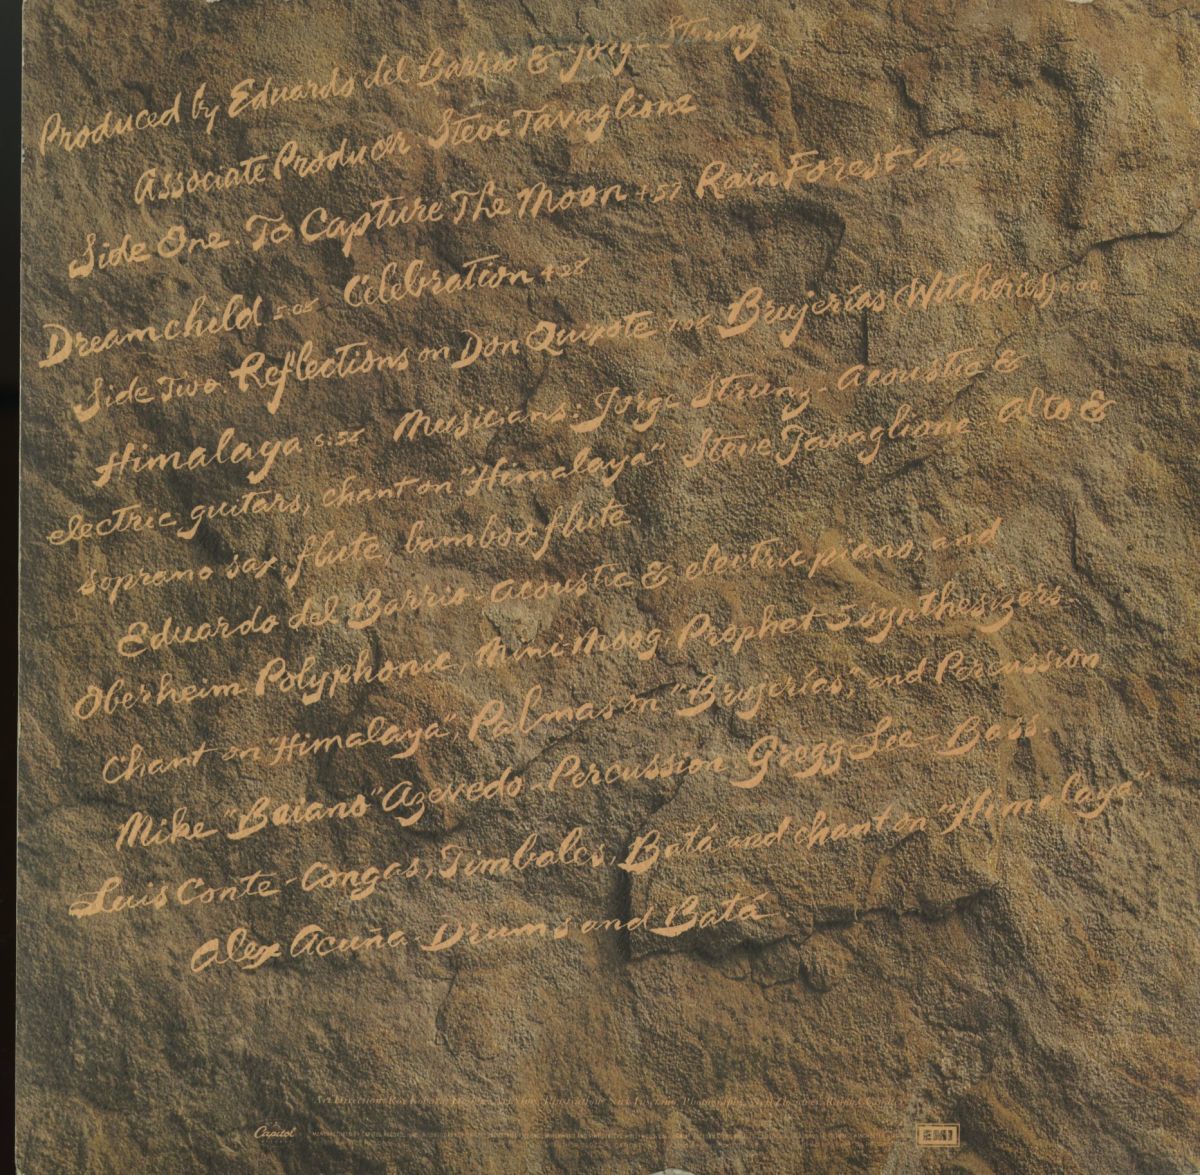 Produced by Eduardo del Barrio & Jorge Strunz
Associate Producer Steve Tavaglione
Side One To Capture The Moon 4:57 Rain Forest
Dreamchild Celebration 4:28
Side Two Reflections on Don Quixote Brujerías (Witcheries)
Himalaya Musicians: Jorge Strunz - Acoustic &
electric guitars, chant on "Himalaya" Steve Tavaglione Alto &
soprano sax, flute, bamboo flute
Eduardo del Barrio - Acoustic & electric piano, and
Oberheim Polyphonic, Mini-Moog, Prophet 5 synthesizers
Chant on "Himalaya", Palmas on "Brujerías", and Percussion
Mike "Baiano" Azevedo - Percussion Gregg Lee - Bass.
Luis Conte - Congas, Timbales, Batá and chant on "Himalaya"
Alex Acuña - Drums and Batá.
Capitol
EMI